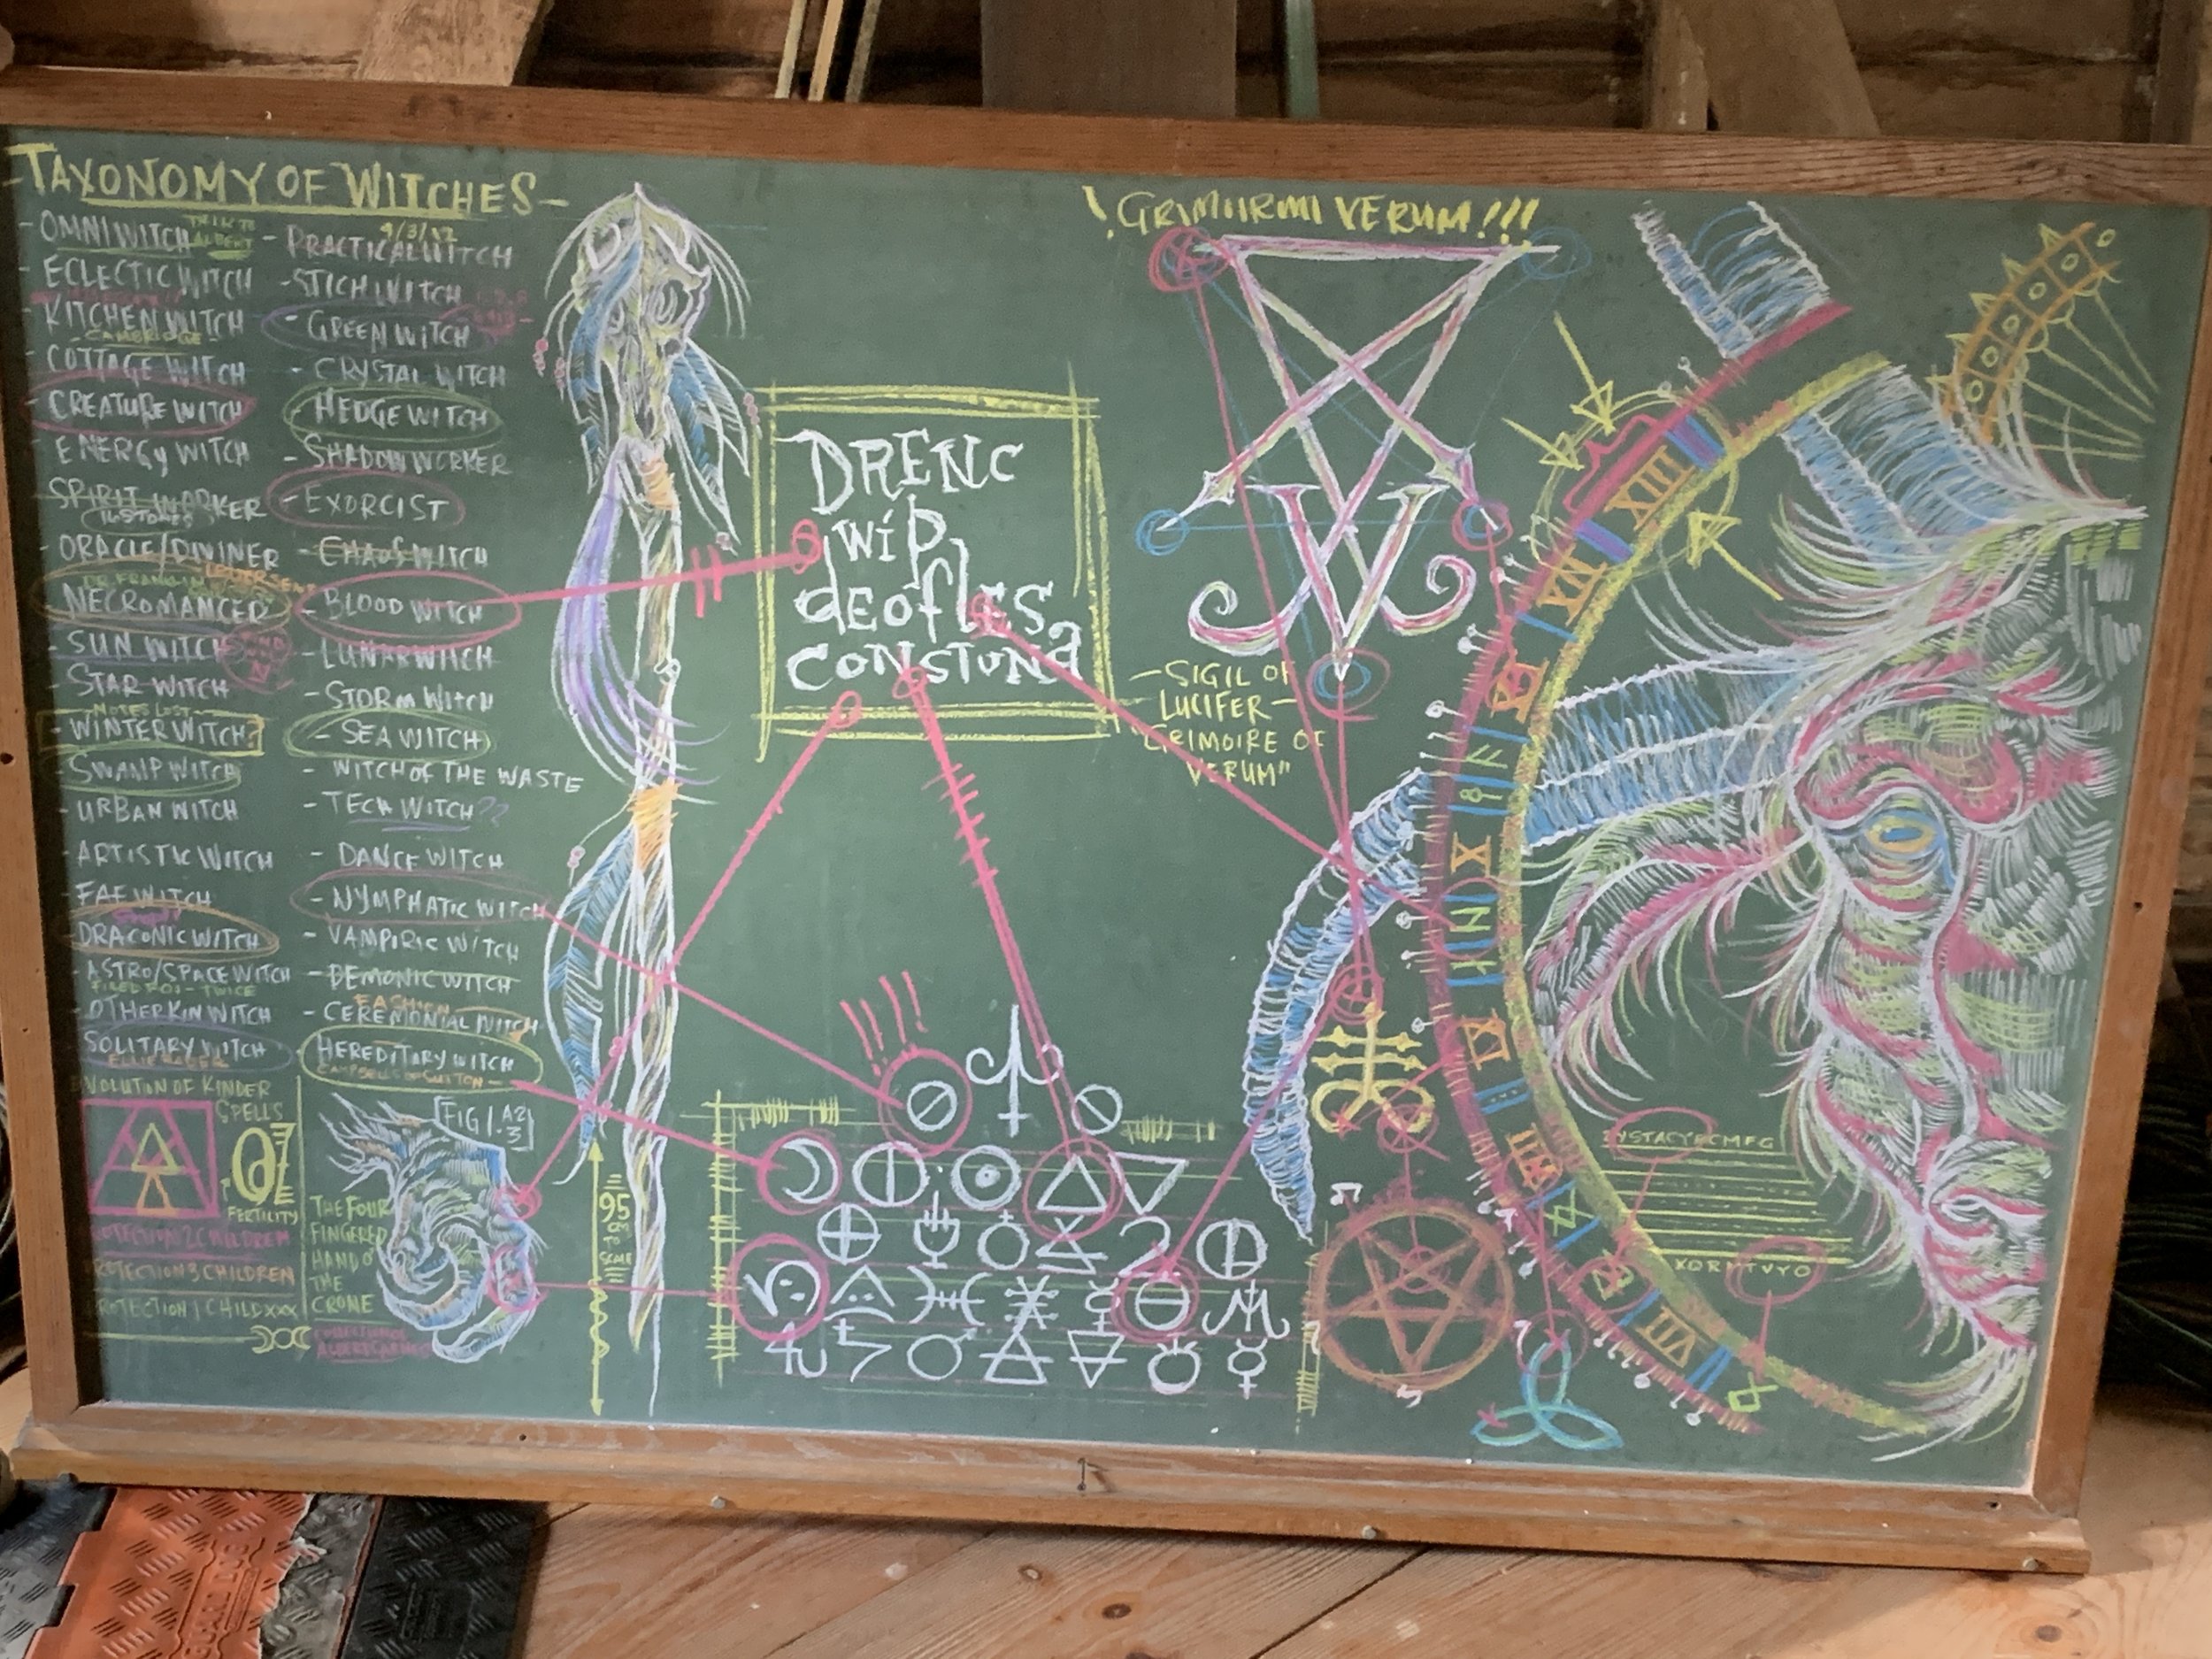 -TAXONOMY OF WITCHES-
- OMNIWITCH
TALK TO
ALBERT
- ECLECTIC WITCH
KITCHEN WITCH
CAMBRIDGE
- COTTAGE WITCH
- CREATURE WITCH
- ENERGY WITCH
SPIRIT WORKER
- ORACLE/DIVINER
DR. FRANKLIN
NECROMANCER
- SUN WITCH
- STAR WITCH
NOTES LOST-
- WINTER WITCH?
- SWAMP WITCH
- URBAN WITCH
- ARTISTIC WITCH
- FAE WITCH
- DRACONIC WITCH
- ASTRO/SPACE WITCH
- TWICE
- OTHERKIN WITCH
SOLITARY WITCH
9/3/
- PRACTICAL WITCH
- STICH WITCH
- GREEN WITCH
- CRYSTAL WITCH
- HEDGE WITCH
- SHADOW WORKER
- EXORCIST
- CHAOS WITCH
- BLOOD WITCH
- LUNAR WITCH
- STORM WITCH
- SEA WITCH
- WITCH OF THE WASTE
- TECH WITCH??
- DANCE WITCH
- NYMPHATIC WITCH
- VAMPIRIC WITCH
- DEMONIC WITCH
- CEREMONIAL WITCH
HEREDITARY WITCH
EVOLUTION OF KINDER
SPELLS
FERTILITY
PROTECTION 2 CHILDREN
PROTECTION 3 CHILDREN
PROTECTION 1 CHILD XXX
FIG 1. A2/3
THE FOUR
FINGERED
HAND O'
THE
CRONE
95
CM
TO
SCALE
DRENC
wip
deofles
constuna
!GRIMIIRMI VERUM!!!
-SIGIL OF
LUCIFER-
GRIMOIRE OF
VERUM"
XIII
XI
X
IX
VIII